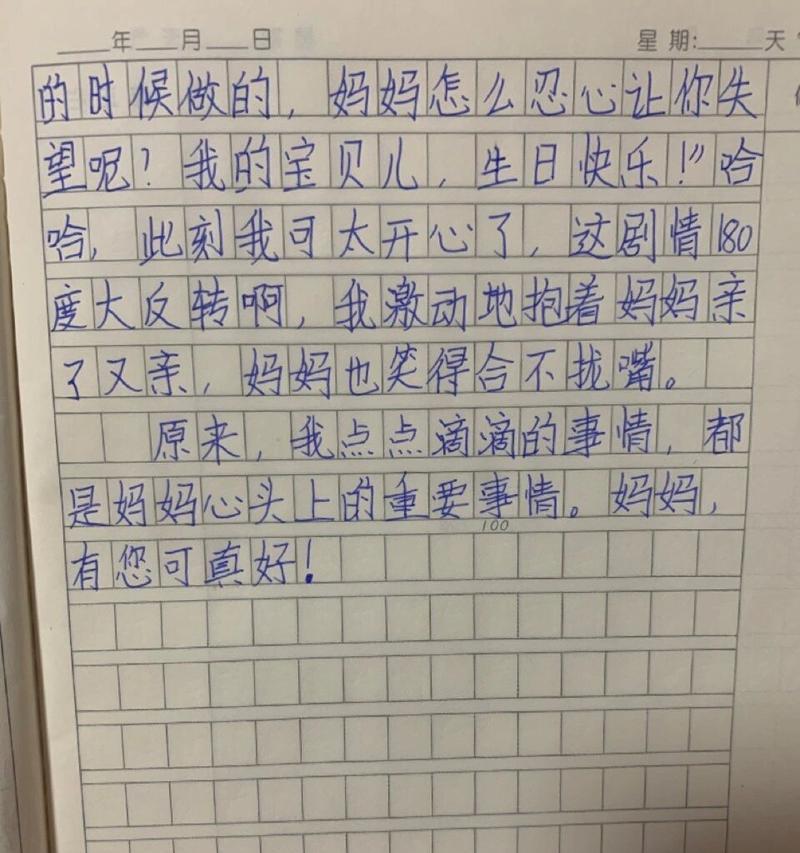 ____年____月____日 星期:____天
的时候做的，妈妈怎么忍心让你失
望呢？我的宝贝儿，生日快乐！”哈
哈，此刻我可太开心了，这剧情180
度大反转啊，我激动地抱着妈妈亲
了又亲，妈妈也笑得合不拢嘴。
原来，我点点滴滴的事情，都
是妈妈心头上的重要事情。妈妈，
100
有您可真好！